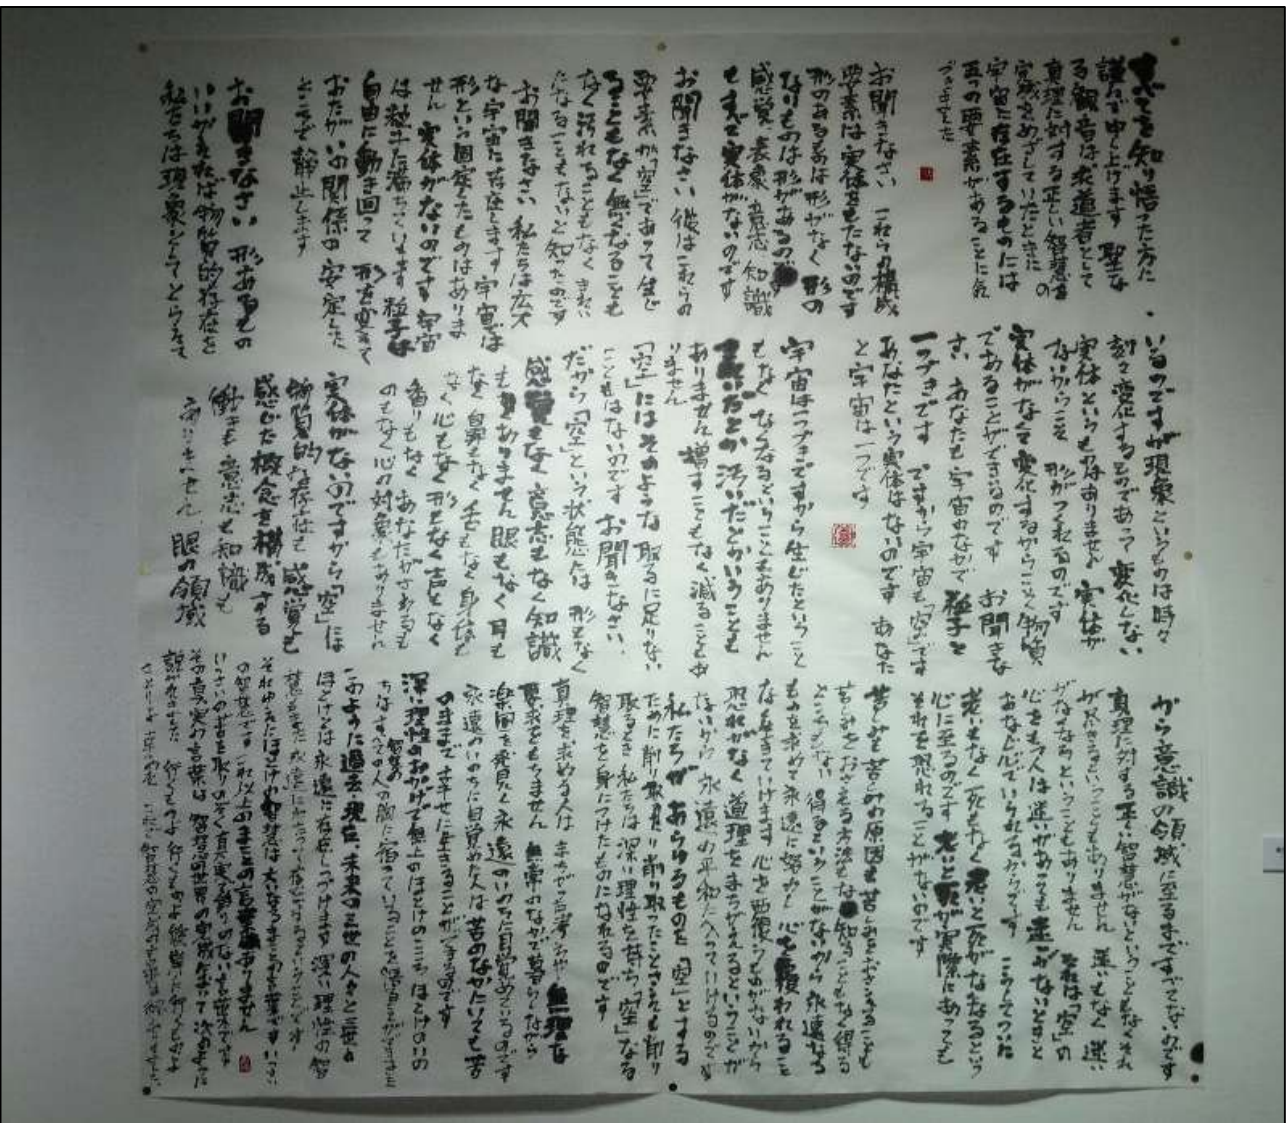 すべてを知り悟った方に
謹んで申し上げます 聖な
る観音は求道者として
真理に対する正しい智慧の
完成をめざしていたときに
宇宙に存在するものには
五つの要素があることに気
づきました
お聞きなさい これらの構成
要素は実体をもたないのです
形のあるものは形がなく 形の
ないものは形があるのです
感覚、表象、意志、知識
もすべて実体がないのです
お聞きなさい 彼はこれらの
要素が「空」であって生じ
ることもなく無くなることも
なく汚れることもなくきれい
になることもないと知ったのです
お聞きなさい 私たちは広大
な宇宙に存在します 宇宙では
形という固定したものはありま
せん 実体がないのです 宇宙
は粒子に満ちています 粒子は
自由に動き回って 形を変えて
おたがいの関係の 安定した
ところで静止します
お聞きなさい 形あるもの
いいかえれば物質的存在を
私たちは現象としてとらえて
いるのですが現象というものは時々
刻々変化するものであって 変化しない
実体というものはありません 実体が
ないからこそ 形がつくれるのです
実体がなくて変化するからこそ 物質
であることができるのです お聞きな
さい あなたも 宇宙のなかで 粒子と
一つづきです ですから宇宙も「空」です
あなたという実体はないのです あなた
と宇宙は一つです
宇宙は一つづきですから生じたということ
もなく なくなるということもありません
きれいだとか 汚いだとかいうことも
ありません 増すこともなく減ることもあ
りません
「空」にはそのような 取るに足りない
ことはないのです お聞きなさい
だから「空」という状態には 形もなく
感覚もなく 意志もなく 知識
もありません 眼もなく 耳も
なく 鼻もなく 舌もなく 身体も
なく 心もなく 形もなく 声もなく
香りもなく あなたがさわるも
のもなく 心の対象もありません
実体がないのですから「空」には
物質的存在も 感覚も
感じた概念を構成する
働きも 意志も 知識も
ありません 眼の領域
から意識の領域に至るまですべてないのです
真理に対する正しい智慧がないということもなくそれ
が尽きるということもありません 迷いもなく 迷い
がなくなるということもありません それは「空」の
心をもつ人は 迷いがあっても 迷いがないときと
おなじ心でいられるからです こうしてついに
老いもなく 死もなく 老いと死がなくなるという
心に至るのです 老いと死が 実際にあっても
それを恐れることがないのです
苦しみも 苦しみの原因も 苦しみをおさえることも
苦しみをおさえる方法もない 知ることもなく 得る
ところもない 得るということがないから 永遠なる
ものを求めて 永遠に努力し 心を覆われること
なく 生きていけます 心を覆うものがないから
恐れがなく 道理をまちがえるということが
ないから 永遠の平和に入っていけるのです
私たちが あらゆるものを「空」とする
ために 削り取り 削り取ったことさえも削り
取るとき 私たちは深い理性を持ち「空」なる
智慧を身につけたものになれるのです
真理を求める人は まちがった考えや 無理な
要求をもちません 無常のなかで暮らしながら
楽園を発見し 永遠のいのちに目覚めているのです
永遠のいのちに目覚めた人は 苦のなかにいて 苦
のままで 幸せに生きることができるのです
深い理性のおかげで 無上のほとけのこころ ほとけのいの
ちはすべての人の胸に宿っていることを
このように 過去・現在・未来の三世の人々と 三世の
ほとけとは 永遠に存在しつづけます 深い理性の智
慧もまた 永遠に
それゆえに ほとけの智慧は 大いなるまことの言葉です いっさい
の智慧です これ以上のまことの言葉はありません
いっさいの苦を取りのぞく 真実で偽りのない言葉です
その真実の言葉は 智慧の世界の完成において 次のように
説かれました 行くものよ 行くものよ